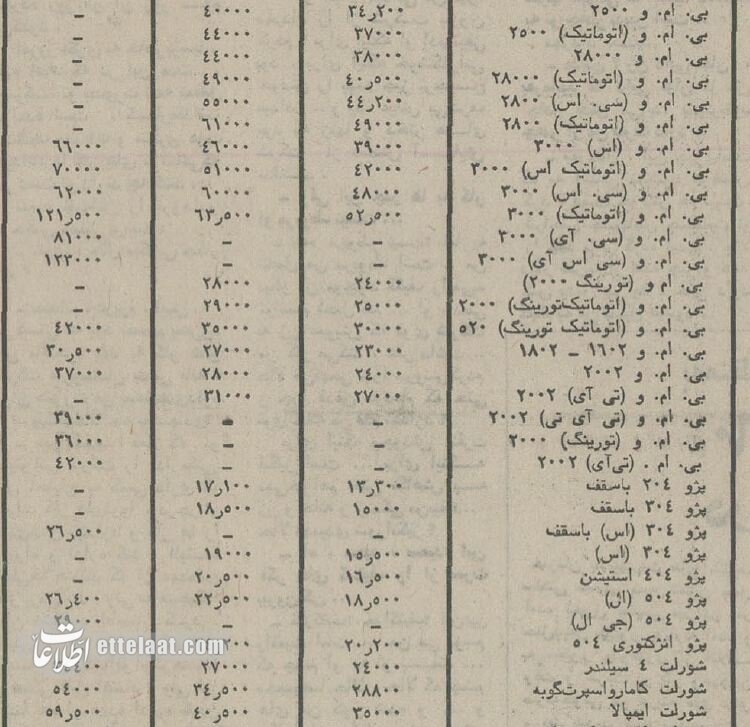 بی. ام. و ۲۵۰۰ ۳۴ر۲۰۰ ۴۰۰۰۰ –
بی. ام. و (اتوماتیک) ۲۵۰۰ ۳۷۰۰۰ ۴۴۰۰۰ –
بی. ام. و ۲۸۰۰۰ ۳۸۰۰۰ ۴۴۰۰۰ –
بی. ام. و (اتوماتیک) ۲۸۰۰۰ ۴۰ر۵۰۰ ۴۹۰۰۰ –
بی. ام. و (سی. اس) ۲۸۰۰ ۴۴ر۲۰۰ ۵۵۰۰۰ –
بی. ام. و (اتوماتیک) ۲۸۰۰ ۴۹۰۰۰ ۶۱۰۰۰ –
بی. ام. و (اس) ۳۰۰۰ ۳۹۰۰۰ ۴۶۰۰۰ ۶۶۰۰۰
بی. ام. و (اتوماتیک اس) ۳۰۰۰ ۴۲۰۰۰ ۵۱۰۰۰ ۷۰۰۰۰
بی. ام. و (سی. اس) ۳۰۰۰ ۴۸۰۰۰ ۶۰۰۰۰ ۶۲۰۰۰
بی. ام. و (اتوماتیک) ۳۰۰۰ ۵۲ر۵۰۰ ۶۳ر۵۰۰ ۱۲۱ر۵۰۰
بی. ام. و (سی. آی) ۳۰۰۰ – – ۸۱۰۰۰
بی. ام. و (سی اس آی) ۳۰۰۰ – – ۱۲۳۰۰۰
بی. ام و (تورینگ ۲۰۰۰) ۲۴۰۰۰ ۲۸۰۰۰ –
بی. ام. و (اتوماتیک‌تورینگ) ۲۰۰۰ ۲۵۰۰۰ ۲۹۰۰۰ –
بی. ام. و (اتوماتیک تورینگ) ۵۲۰ ۳۰۰۰۰ ۳۵۰۰۰ ۴۲۰۰۰
بی. ام. و ۱۶۰۲ – ۱۸۰۲ ۲۳۰۰۰ ۲۷۰۰۰ ۳۰ر۵۰۰
بی. ام. و ۲۰۰۲ ۲۴۰۰۰ ۲۸۰۰۰ ۳۷۰۰۰
بی. ام. و (تی آی) ۲۰۰۲ ۲۷۰۰۰ ۳۱۰۰۰ –
بی. ام. و (تی آی تی) ۲۰۰۲ – – ۳۹۰۰۰
بی. ام. و (تورینگ) ۲۰۰۰ – – ۳۶۰۰۰
بی. ام . (تی‌آی) ۲۰۰۲ – – ۴۲۰۰۰
پژو ۲۰۴ باسقف ۱۳ر۳۰۰ ۱۷ر۱۰۰ –
پژو ۳۰۴ باسقف ۱۵۰۰۰ ۱۸ر۵۰۰ –
پژو ۳۰۴ (اس) باسقف – – ۲۶ر۵۰۰
پژو ۳۰۴ (اس) ۱۵ر۵۰۰ ۱۹۰۰۰ –
پژو ۴۰۴ استیشن ۱۶ر۵۰۰ ۲۰ر۵۰۰ –
پژو ۵۰۴ (ال) ۱۸ر۵۰۰ ۲۲ر۵۰۰ ۲۶ر۴۰۰
پژو ۵۰۴ (جی ال) – – ۲۹۰۰۰
پژو انژکتوری ۵۰۴ ۲۰ر۲۰۰
شورلت ۴ سیلندر ۲۴۰۰۰ ۲۷۰۰۰
شورلت کامارواسپرت‌کوپه ۲۸۸۰۰ ۳۴ر۵۰۰ ۵۴۰۰۰
شورلت ایمپالا ۳۵۰۰۰ ۴۰ر۵۰۰ ۵۹ر۵۰۰
اطلاعات ettelaat.com